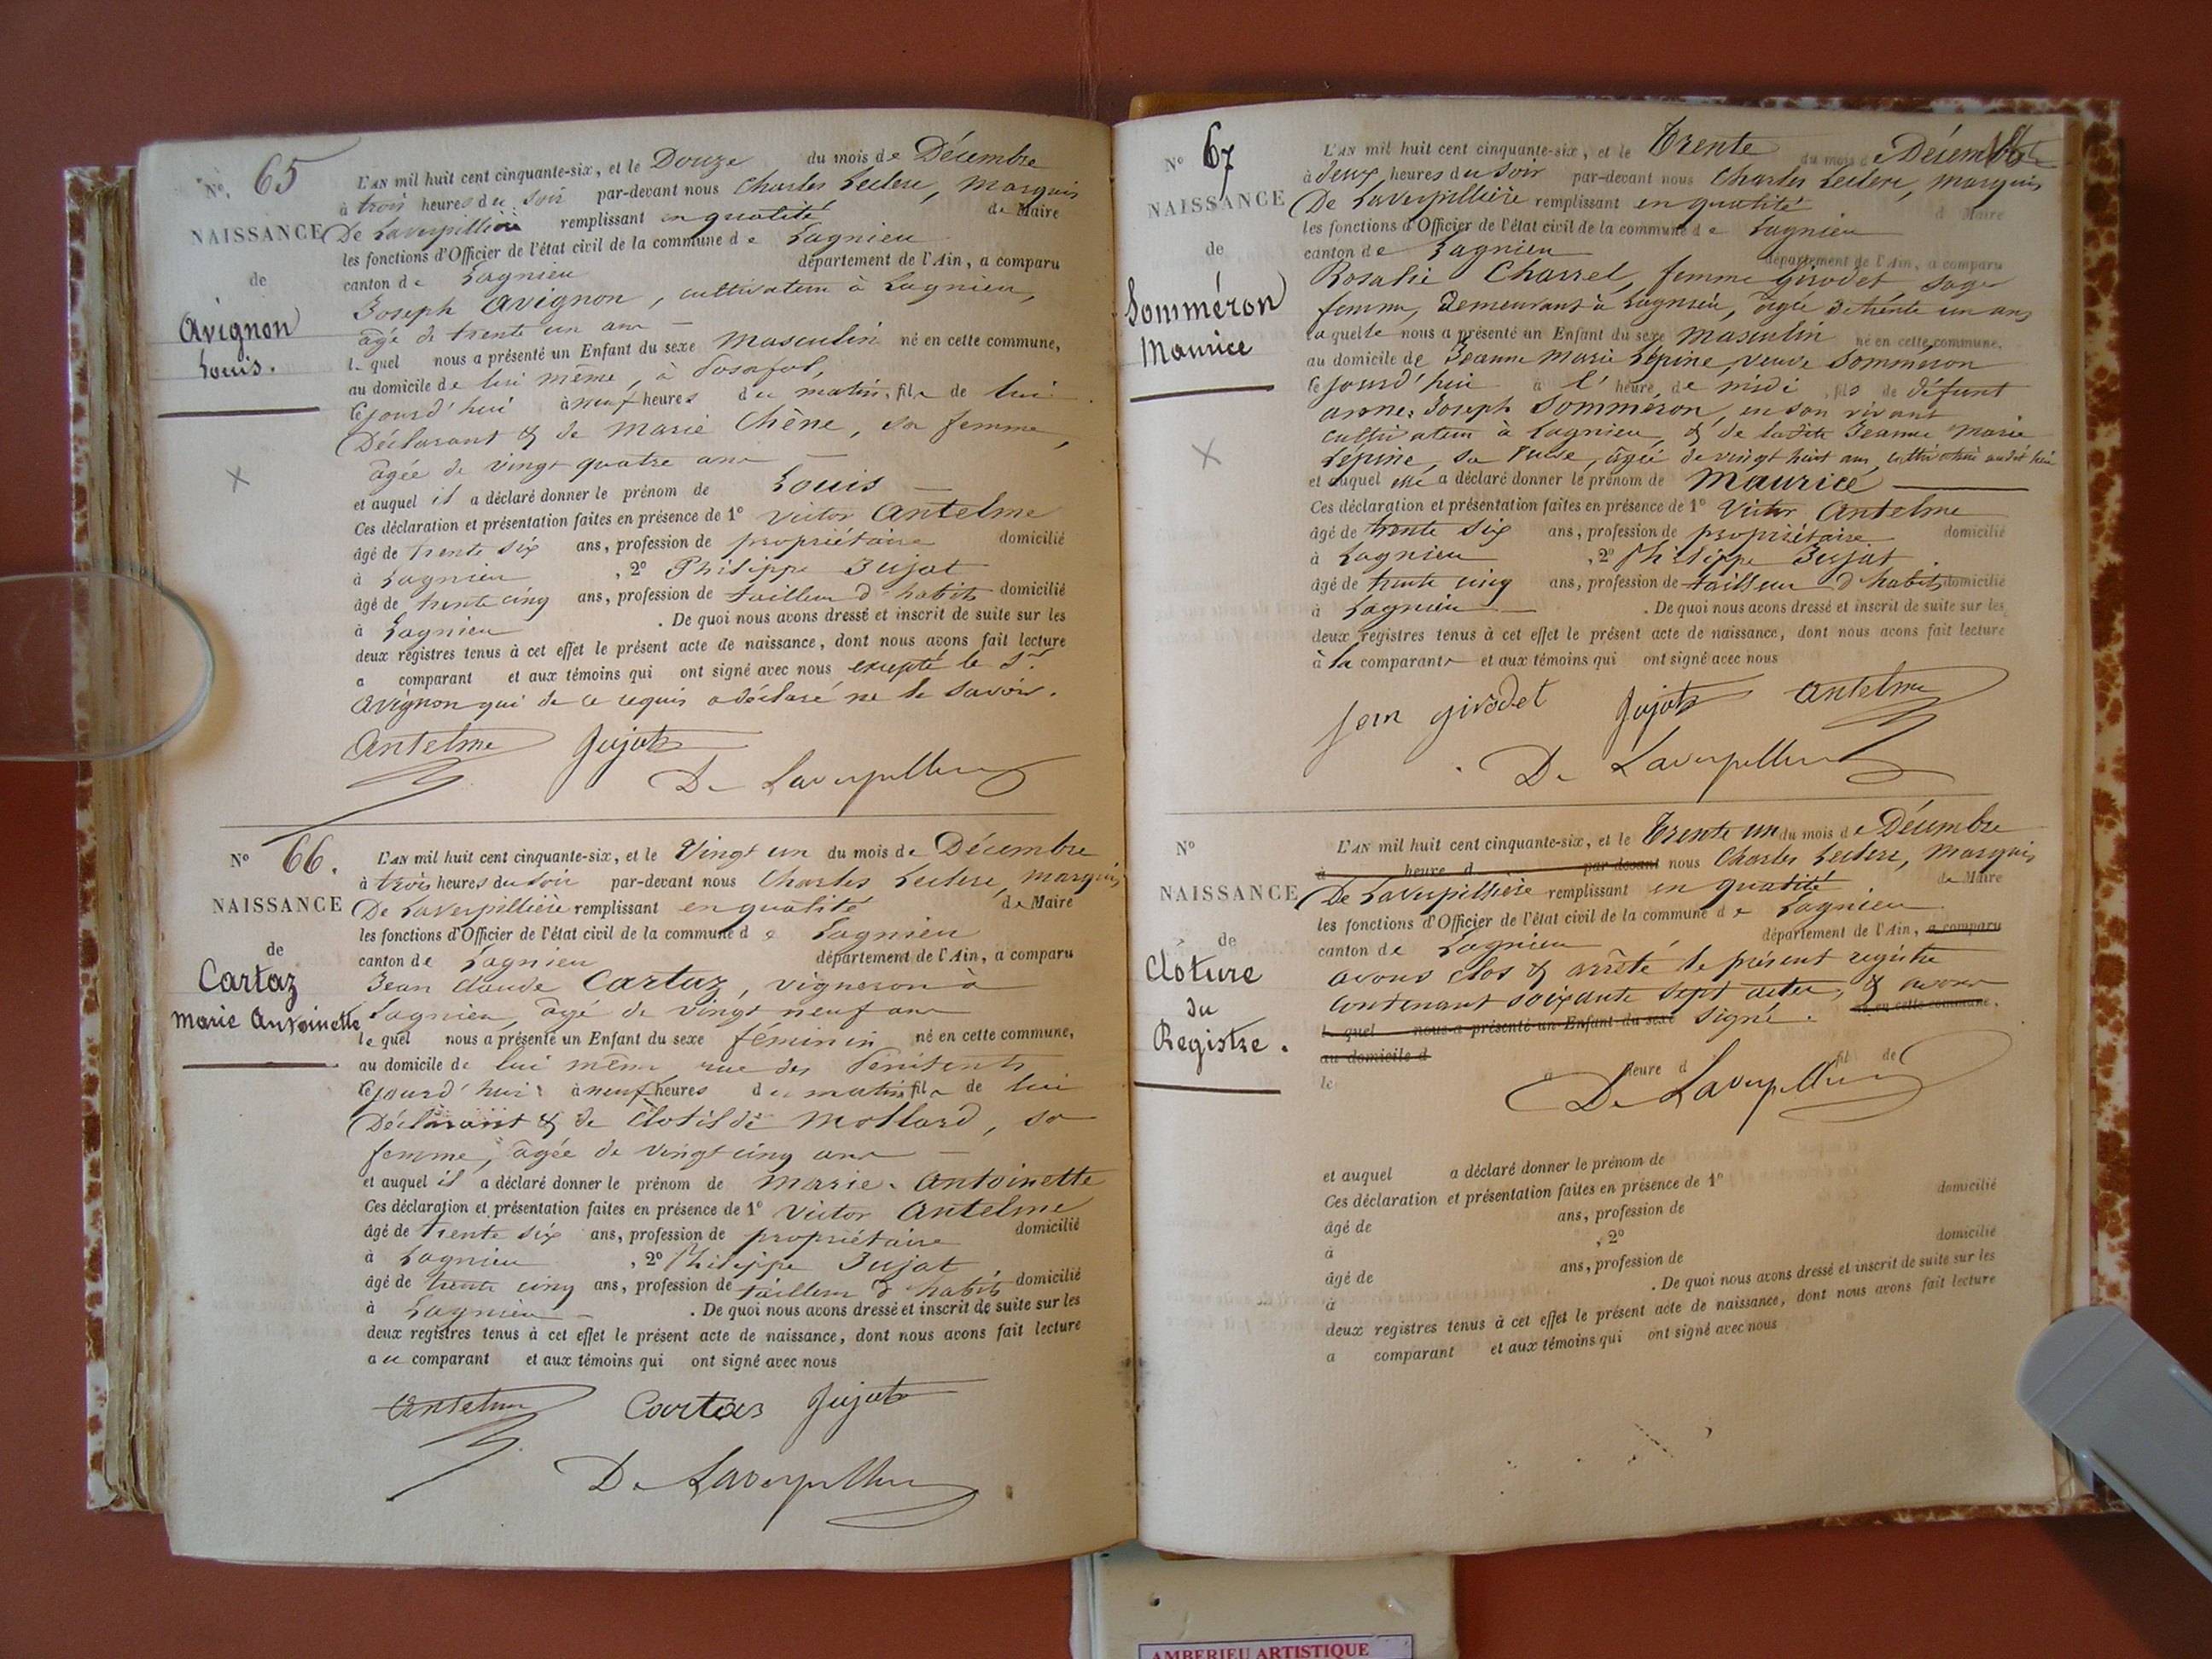 N° 65
NAISSANCE
de
Avignon
Louis.
L'AN mil huit cent cinquante-six, et le Douze du mois de Décembre
à trois heures du soir par-devant nous Charles Leclerc, Marquis
De Laverpillière remplissant en qualité de Maire
les fonctions d'Officier de l'état civil de la commune de Lagnieu
canton de Lagnieu département de l'Ain, a comparu
Joseph Avignon, cultivateur à Lagnieu,
âgé de trente un ans
lequel nous a présenté un Enfant du sexe Masculin né en cette commune,
au domicile de lui même, à
cejourd'hui à neuf heures du matin, fils de lui
Déclarant & de Marie Chêne, sa femme,
âgée de vingt quatre ans
et auquel il a déclaré donner le prénom de Louis
Ces déclaration et présentation faites en présence de 1° Victor Antelme
âgé de trente six ans, profession de propriétaire domicilié
à Lagnieu, 2° Philippe Jujat
âgé de trente cinq ans, profession de tailleur d'habits domicilié
à Lagnieu. De quoi nous avons dressé et inscrit de suite sur les
deux registres tenus à cet effet le présent acte de naissance, dont nous avons fait lecture
a comparant et aux témoins qui ont signé avec nous excepté le Sr.
Avignon qui de ce requis a déclaré ne le savoir.
Antelme Jujat
De Laverpilliere
N° 66.
NAISSANCE
de
Cartaz
Marie Antoinette
L'AN mil huit cent cinquante-six, et le Vingt un du mois de Décembre
à trois heures du soir par-devant nous Charles Leclerc, Marquis
De Laverpillière remplissant en qualité de Maire
les fonctions d'Officier de l'état civil de la commune de Lagnieu
canton de Lagnieu département de l'Ain, a comparu
Jean Claude Cartaz, vigneron à
Lagnieu, âgé de vingt neuf ans
lequel nous a présenté un Enfant du sexe féminin né en cette commune,
au domicile de lui même rue des Pénitents
cejourd'hui à neuf heures du matin fille de lui
Déclarant & de Clotilde Mollard, sa
femme, âgée de vingt cinq ans
et auquel il a déclaré donner le prénom de Marie-Antoinette
Ces déclaration et présentation faites en présence de 1° Victor Antelme
âgé de trente six ans, profession de propriétaire domicilié
à Lagnieu, 2° Philippe Jujat
âgé de trente cinq ans, profession de tailleur d'habits domicilié
à Lagnieu. De quoi nous avons dressé et inscrit de suite sur les
deux registres tenus à cet effet le présent acte de naissance, dont nous avons fait lecture
au comparant et aux témoins qui ont signé avec nous
Antelme Cartas Jujat
De Laverpilliere
N° 67
NAISSANCE
de
Somméron
Maurice
L'AN mil huit cent cinquante-six, et le Trente du mois de Décembre
à deux heures du soir par-devant nous Charles Leclerc, Marquis
De Laverpillière remplissant en qualité d Maire
les fonctions d'Officier de l'état civil de la commune de Lagnieu
canton de Lagnieu département de l'Ain, a comparu
Rosalie Charrel, femme Girodet, sage
femme, demeurant à Lagnieu, âgée de trente un ans
laquelle nous a présenté un Enfant du sexe masculin né en cette commune,
au domicile de Jeanne Marie Lépine, veuve Somméron
cejourd'hui à l'heure de midi, fils de défunt
Joseph Somméron, en son vivant
cultivateur à Lagnieu, & de ladite Jeanne Marie
Lépine, sa veuve, âgée de vingt huit ans,
et auquel elle a déclaré donner le prénom de Maurice
Ces déclaration et présentation faites en présence de 1° Victor Antelme
âgé de trente six ans, profession de propriétaire domicilié
à Lagnieu, 2° Philippe Jujat
âgé de trente cinq ans, profession de tailleur d'habits domicilié
à Lagnieu. De quoi nous avons dressé et inscrit de suite sur les
deux registres tenus à cet effet le présent acte de naissance, dont nous avons fait lecture
à la comparante et aux témoins qui ont signé avec nous
girodet Jujat Antelme
De Laverpilliere
N°
NAISSANCE
de
Clôture
du
Registre.
L'AN mil huit cent cinquante-six, et le Trente un du mois de Décembre
à heure d par-devant nous Charles Leclerc, Marquis
De Laverpillière remplissant en qualité de Maire
les fonctions d'Officier de l'état civil de la commune de Lagnieu
canton de Lagnieu département de l'Ain, a comparu
avons clos & arrêté le présent registre
contenant soixante sept actes, & avons
l quel nous a présenté un Enfant du sexe signé. né en cette commune,
au domicile d
le à heure d fil de
De Laverpilliere
et auquel a déclaré donner le prénom de
Ces déclaration et présentation faites en présence de 1°
âgé de ans, profession de domicilié
à , 2°
âgé de ans, profession de domicilié
à . De quoi nous avons dressé et inscrit de suite sur les
deux registres tenus à cet effet le présent acte de naissance, dont nous avons fait lecture
a comparant et aux témoins qui ont signé avec nous
AMBERIEU ARTISTIQUE